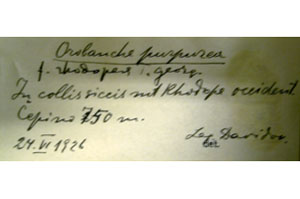 Orobanche purpurea
f. rhodopea
In collis siccis mt Rhodope occident.
Čepino 750 m.
24. VI 1926 Leg. Davidov